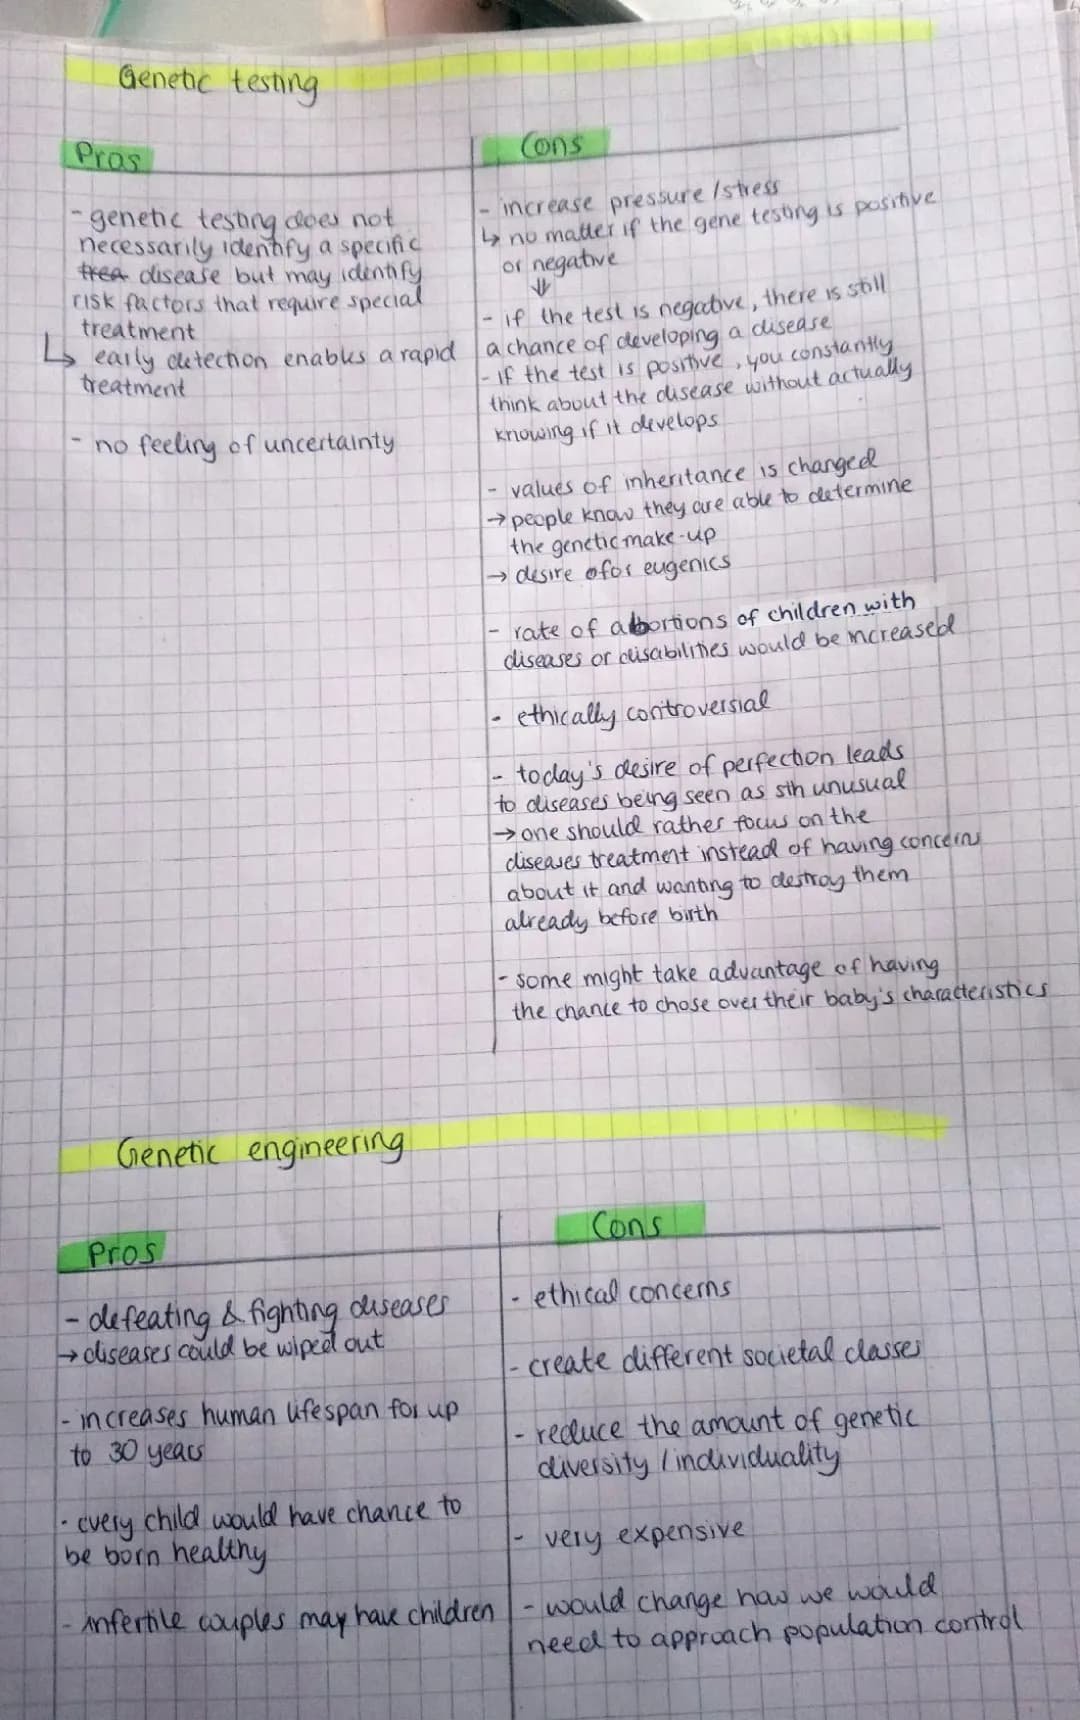 Genetic testing
Pros
- genetic testing does not
necessarily identify a specific
trea disease but may identify
risk factors that require special
treatment
↳ early detection enables a rapid
treatment
- no feeling of uncertainty
Cons
- increase pressure / stress
↳ no matter if the gene testing is positive
or negative
⇓
- if the test is negative, there is still
a chance of developing a disease
- if the test is positive, you constantly
think about the disease without actually
knowing if it develops
- values of inheritance is changed
→ people know they are able to determine
the genetic make-up
→ desire ofor eugenics
- rate of abortions of children with
diseases or disabilities would be increased
- ethically controversial
- today's desire of perfection leads
to diseases being seen as sth unusual
→ one should rather focus on the
diseases treatment instead of having concerns
about it and wanting to destroy them
already before birth
- some might take advantage of having
the chance to chose over their baby's characteristics
Genetic engineering
Pros
- defeating & fighting diseases
→ diseases could be wiped out
- increases human lifespan for up
to 30 years
- every child would have chance to
be born healthy
- infertile couples may have children
Cons
- ethical concerns
- create different societal classes
- reduce the amount of genetic
diversity / individuality
- very expensive
- would change how we would
need to approach population control